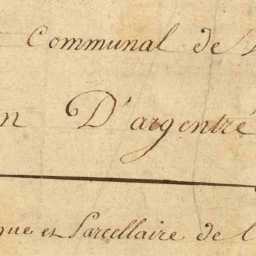 Communal de
D'argentré
que et Parcellaire de